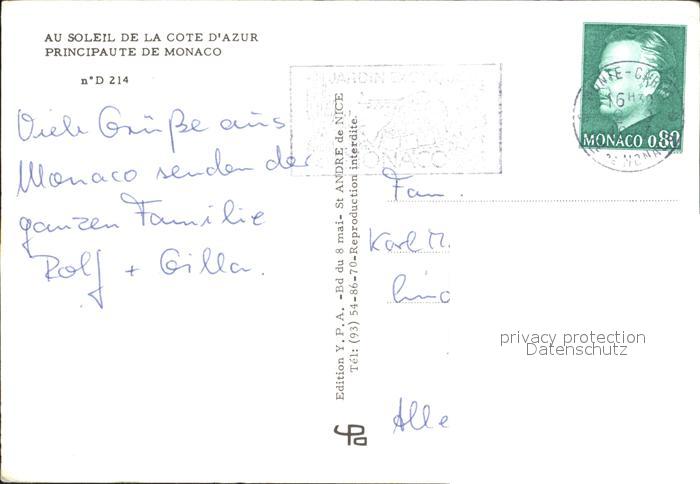 AU SOLEIL DE LA COTE D'AZUR
PRINCIPAUTE DE MONACO
n° D 214
Viele Grüße aus
Monaco senden der
ganzen Familie
Rolf + Gilla.
Edition Y. P. A. -Bd du 8 mai- St ANDRE de NICE
Tél: (93) 54-86-70-Reproduction interdite.
JARDIN EXOTIQUE
MONACO
MONTE-CARLO
16H30
MONACO 0,80
Fam.
Karl M.
Alle
privacy protection
Datenschutz